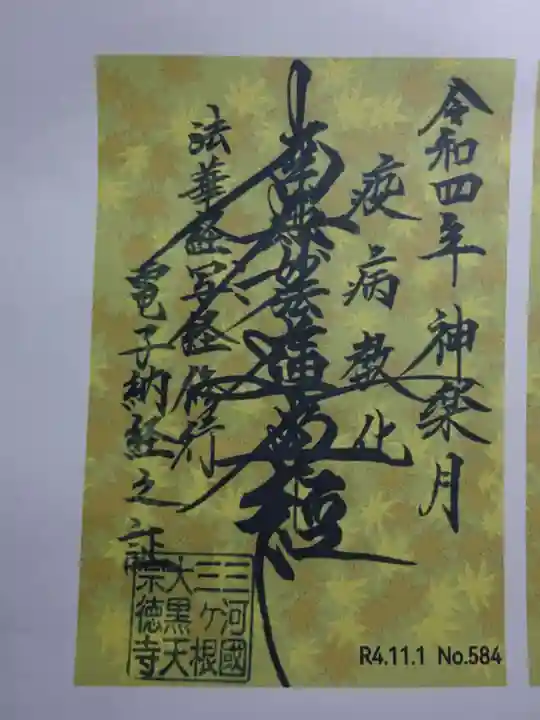 令和四年神楽月
疫病教化
南無妙法蓮華経
法華経写経修行
電子納経之証
三河國
三ヶ根
大黒天
崇徳寺
R4.11.1 No.584